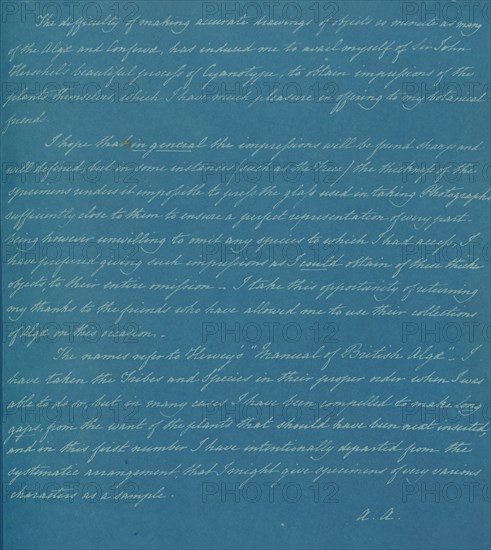 The difficulty of making accurate drawings of objects as minute as many
of the Algæ and Confervæ, has induced me to avail myself of Sir John
Herschel's beautiful process of Cyanotype, to obtain impressions of the
plants themselves, which I have much pleasure in offering to my botanical
friends.
I hope that in general the impressions will be found sharp and
well defined, but in some instances (such as the Fuci) the thickness of the
specimens renders it impossible to press the glass used in taking Photographs
sufficiently close to them to ensure a perfect representation of every part.
Being however unwilling to omit any species to which I had access, I
have preferred giving such impressions as I could obtain of these thicker
objects to their entire omission - I take this opportunity of returning
my thanks to the friends who have allowed me to use their collections
of Algæ on this occasion.
The names refer to Harvey's "Manual of British Algæ" - I
have taken the Tribes and Species in their proper order when I was
able to do so, but in many cases I have been compelled to make long
gaps, from the want of the plants that should have been next inserted,
and in this first number I have intentionally departed from the
systematic arrangement, that I might give specimens of very various
characters as a sample.
A. A.
PHOTO12